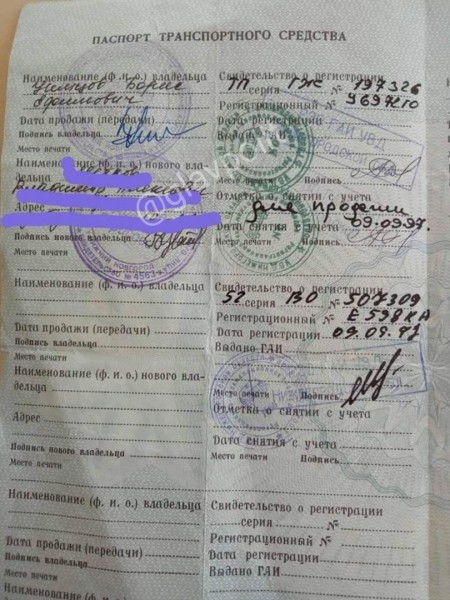 ПАСПОРТ ТРАНСПОРТНОГО СРЕДСТВА
Наименование (ф. и. о.) владельца
Немцов Борис
Ефимович
Дата продажи (передачи)
Подпись владельца
Место печати
Наименование (ф. и. о.) нового вла-
дельца
Адрес
Подпись нового владельца
Место печати
Наименование (ф. и. о.) владельца
Дата продажи (передачи)
Подпись владельца
Место печати
Наименование (ф. и. о.) нового вла-
дельца
Адрес
Подпись нового владельца
Место печати
Наименование (ф. и. о.) владельца
Дата продажи (передачи)
Подпись владельца
Место печати
Наименование (ф. и. о.) нового вла-
Свидетельство о регистрации
серия ГЖ № 197326
Регистрационный №
Дата регистрации
Выдано ГАИ
ГАИ УВД
Место печати Подпись
Отметка о снятии с учета
Для продажи
Дата снятия с учета 09.09.97.
Место печати Подпись
Свидетельство о регистрации
52 серия ВО № 507309
Регистрационный № Е 598 КА
Дата регистрации 09.09.97
Выдано ГАИ
Место печати Подпись
Отметка о снятии с учета
Дата снятия с учета
Место печати Подпись
Свидетельство о регистрации
серия №
Регистрационный №
Дата регистрации
Выдано ГАИ